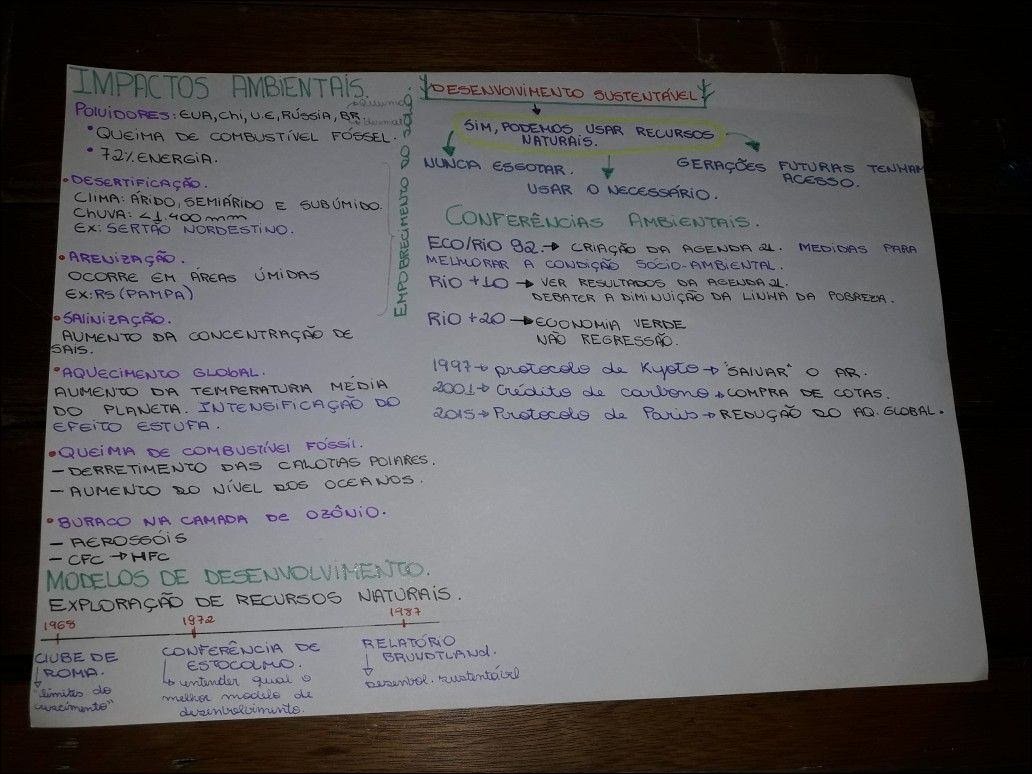 IMPACTOS AMBIENTAIS.
POLUIDORES: EUA, Chi, U.E, RÚSSIA, BR
• QUEIMA DE COMBUSTÍVEL FÓSSEL.
• 72% ENERGIA.
• DESERTIFICAÇÃO.
CLIMA: ÁRIDO, SEMIÁRIDO E SUBÚMIDO.
CHUVA: <1.400 mm
EX: SERTÃO NORDESTINO.
• ARENIZAÇÃO.
OCORRE EM ÁREAS ÚMIDAS
EX: RS (PAMPA)
EMPOBRECIMENTO DO SOLO.
• SALINIZAÇÃO.
AUMENTO DA CONCENTRAÇÃO DE
SAIS.
• AQUECIMENTO GLOBAL.
AUMENTO DA TEMPERATURA MÉDIA
DO PLANETA. INTENSIFICAÇÃO DO
EFEITO ESTUFA.
• QUEIMA DE COMBUSTÍVEL FÓSSIL.
- DERRETIMENTO DAS CALOTAS POLARES.
- AUMENTO DO NÍVEL DOS OCEANOS.
• BURACO NA CAMADA DE OZÔNIO.
- AEROSSÓIS
- CFC → HFC
MODELOS DE DESENVOLVIMENTO.
EXPLORAÇÃO DE RECURSOS NATURAIS.
1968 1972 1987
CLUBE DE
ROMA.
"limites do
crescimento"
CONFERÊNCIA DE
ESTOCOLMO.
↳ entender qual o
melhor modelo de
desenvolvimento.
RELATÓRIO
BRUNDTLAND.
Desenvol. sustentável
DESENVOLVIMENTO SUSTENTÁVEL
SIM, PODEMOS USAR RECURSOS
NATURAIS.
NUNCA ESGOTAR.
USAR O NECESSÁRIO.
GERAÇÕES FUTURAS TENHAM
ACESSO.
CONFERÊNCIAS AMBIENTAIS.
ECO/RIO 92. → CRIAÇÃO DA AGENDA 21. MEDIDAS PARA
MELHORAR A CONDIÇÃO SÓCIO-AMBIENTAL.
RIO +10 → VER RESULTADOS DA AGENDA 21.
DEBATER A DIMINUIÇÃO DA LINHA DA POBREZA.
RIO +20 → ECONOMIA VERDE
NÃO REGRESSÃO.
1997 → protocolo de Kyoto → "SALVAR" O AR.
2001 → Crédito de carbono → COMPRA DE COTAS.
2015 → Protocolo de Paris → REDUÇÃO DO AQ. GLOBAL.